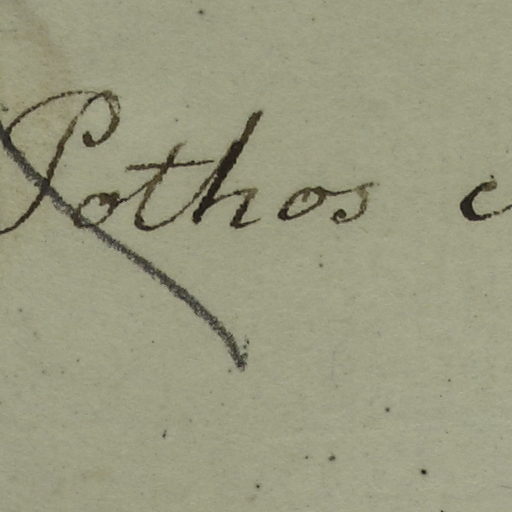 Pothos c